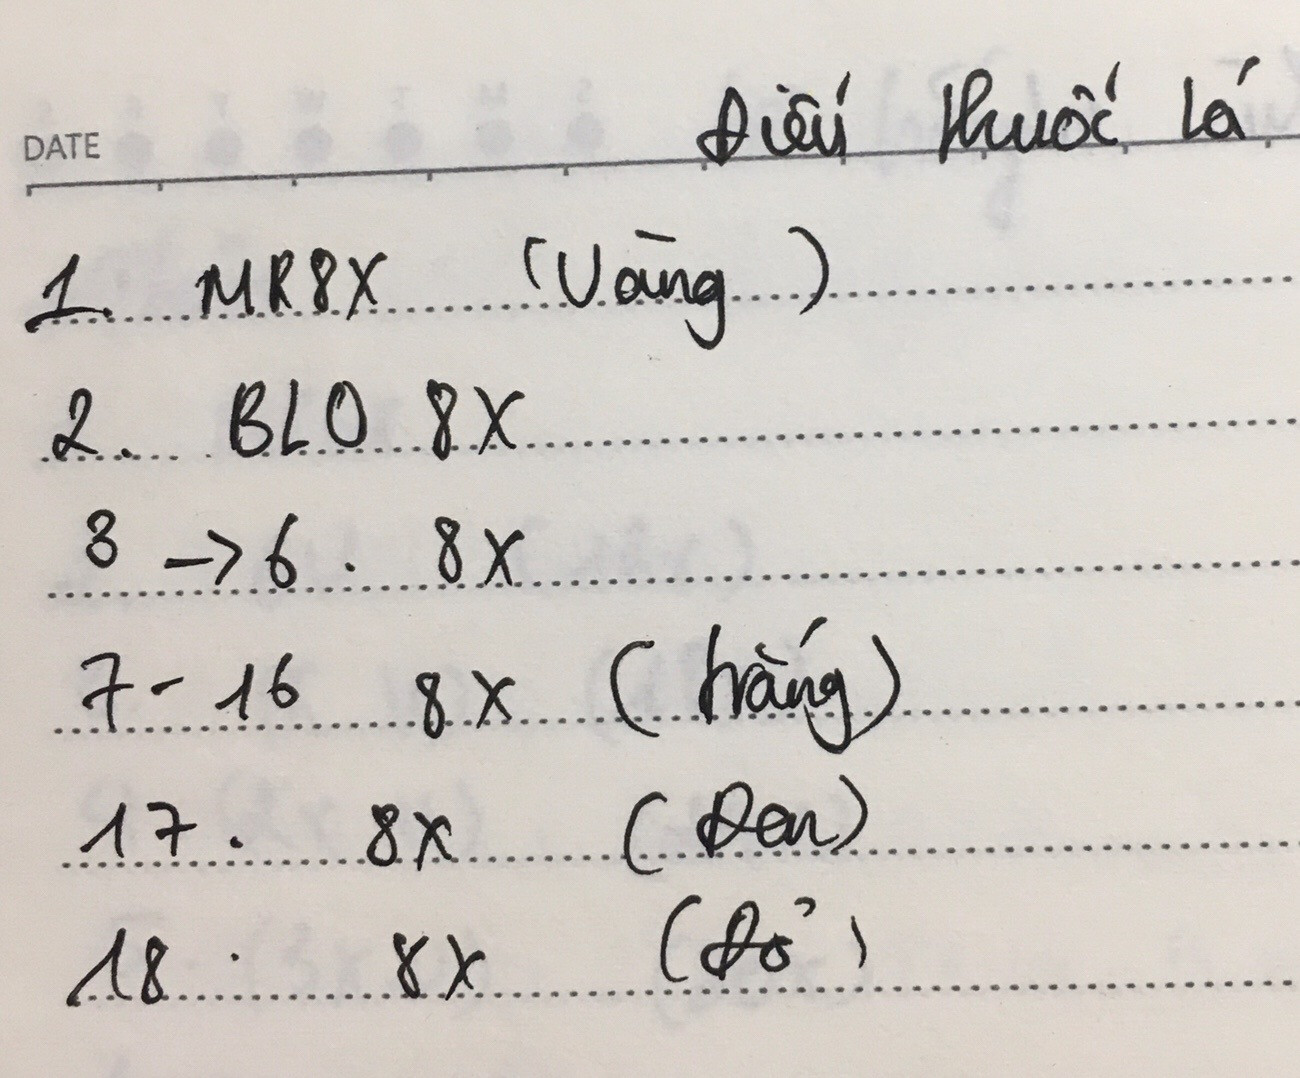 DATE
Điếu thuốc lá
1. MR8X (Vàng)
2. BLO 8X
3 → 6. 8X
7 - 16 8X (trắng)
17. 8X (Đen)
18. 8X (Đỏ)